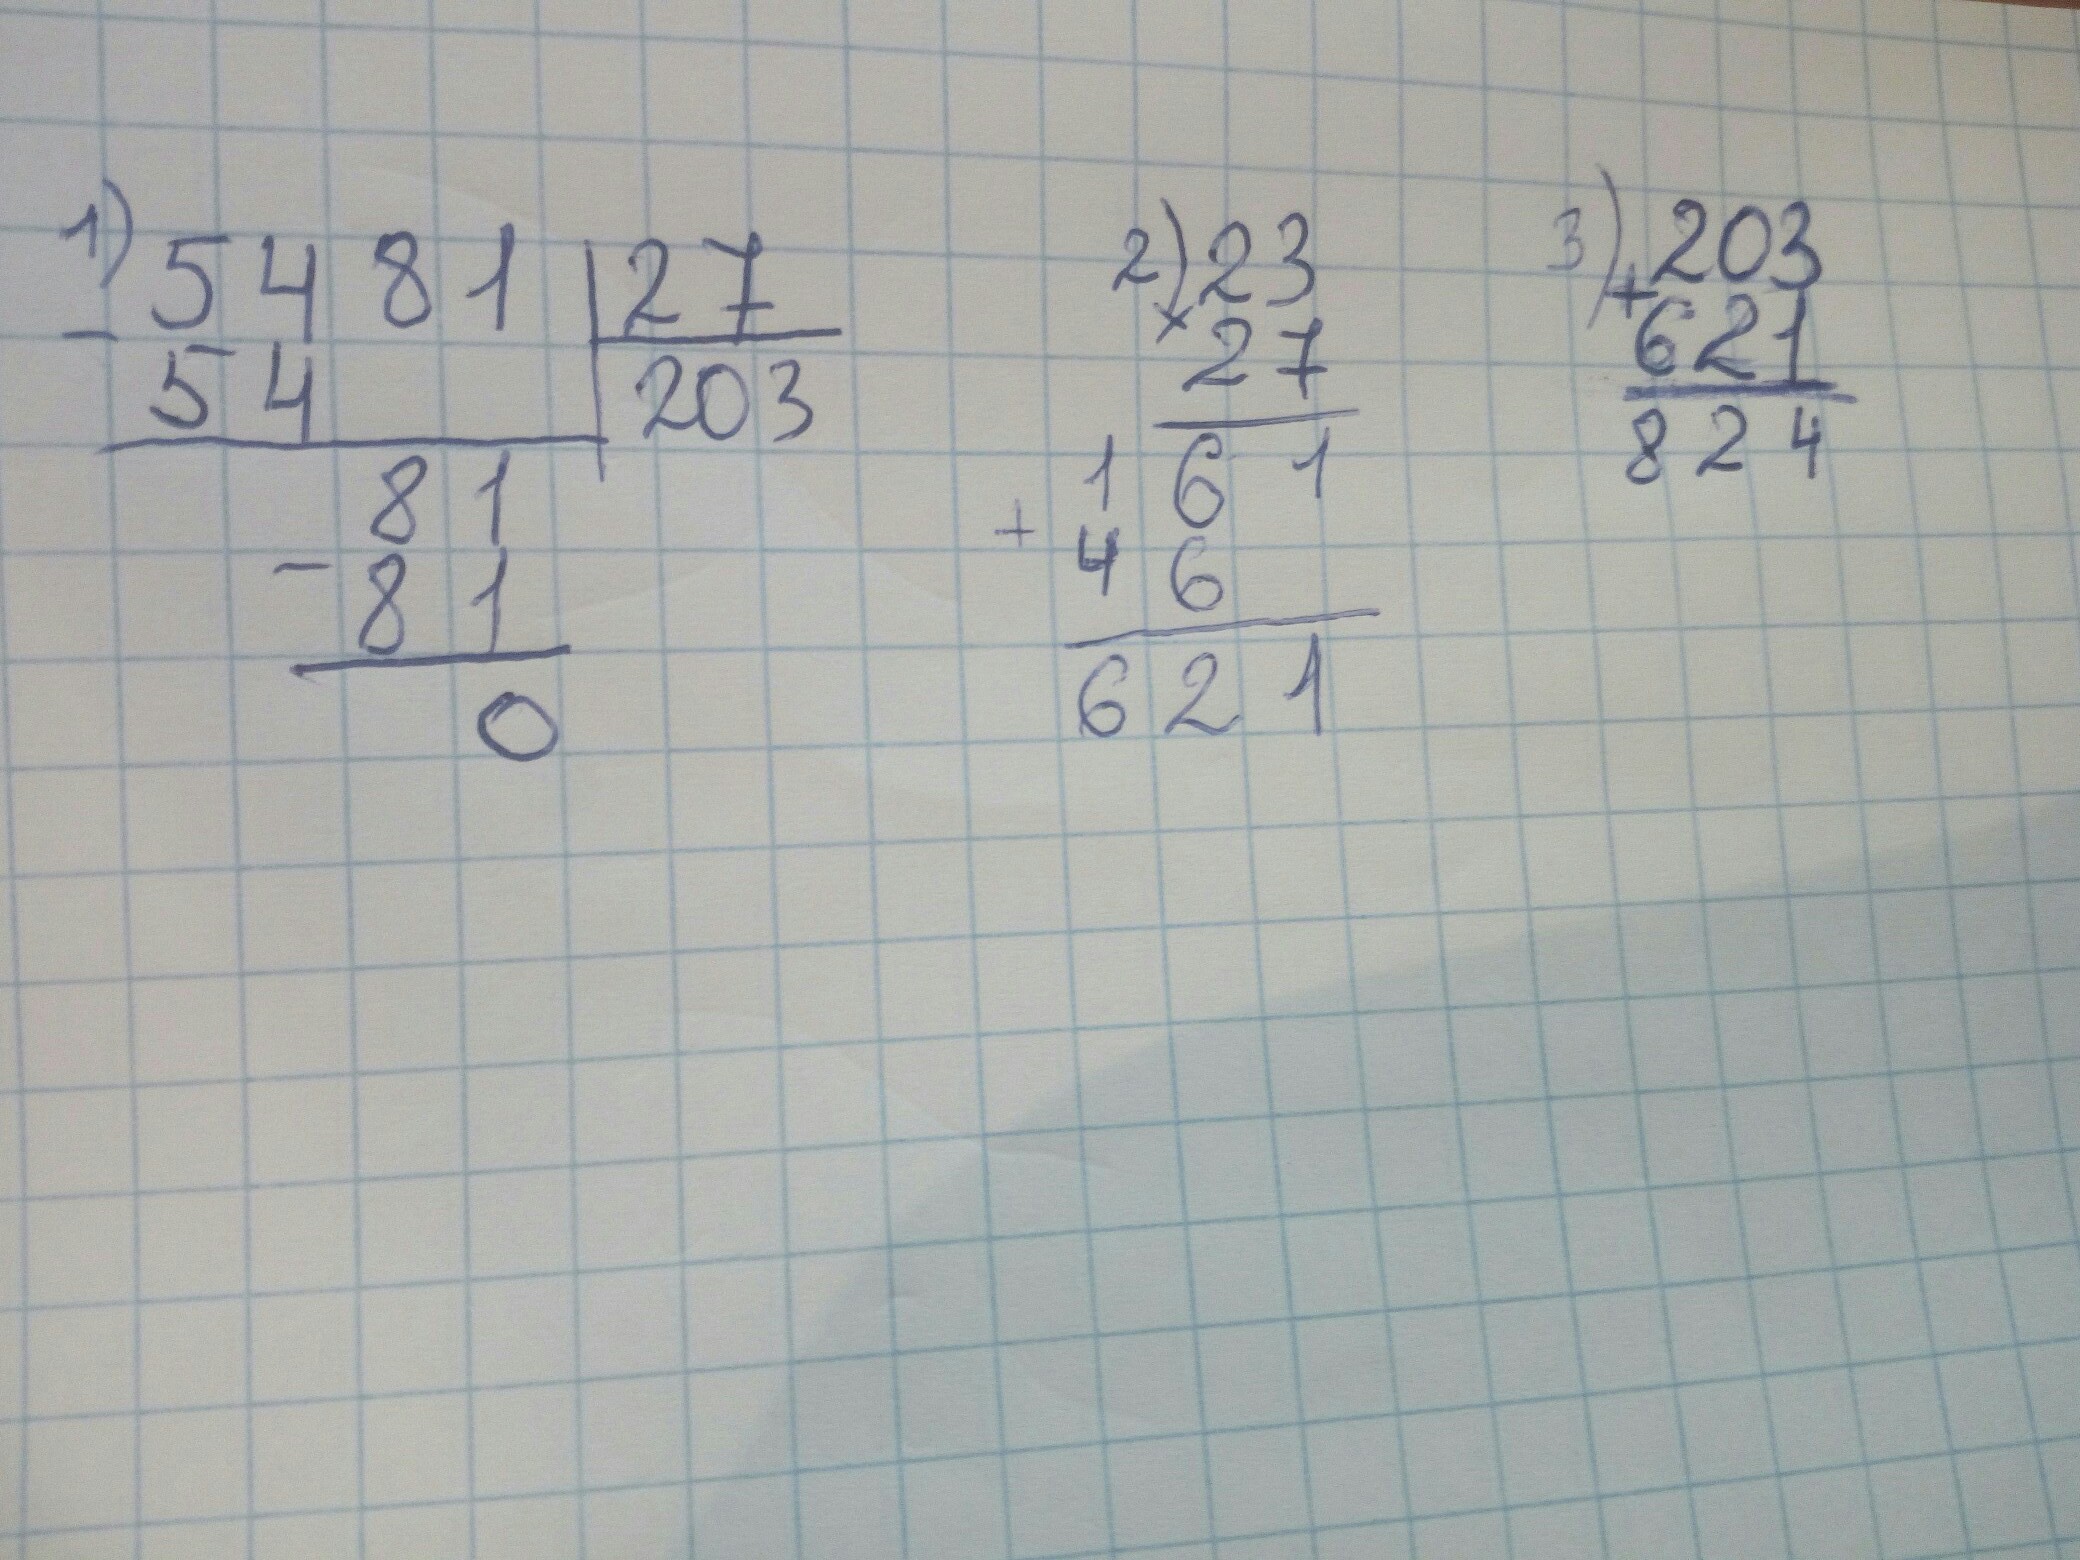 1) 5481 | 27
- 54 203
81
- 81
0
2) 23
× 27
161
+ 46
621
3) 203
+ 621
824